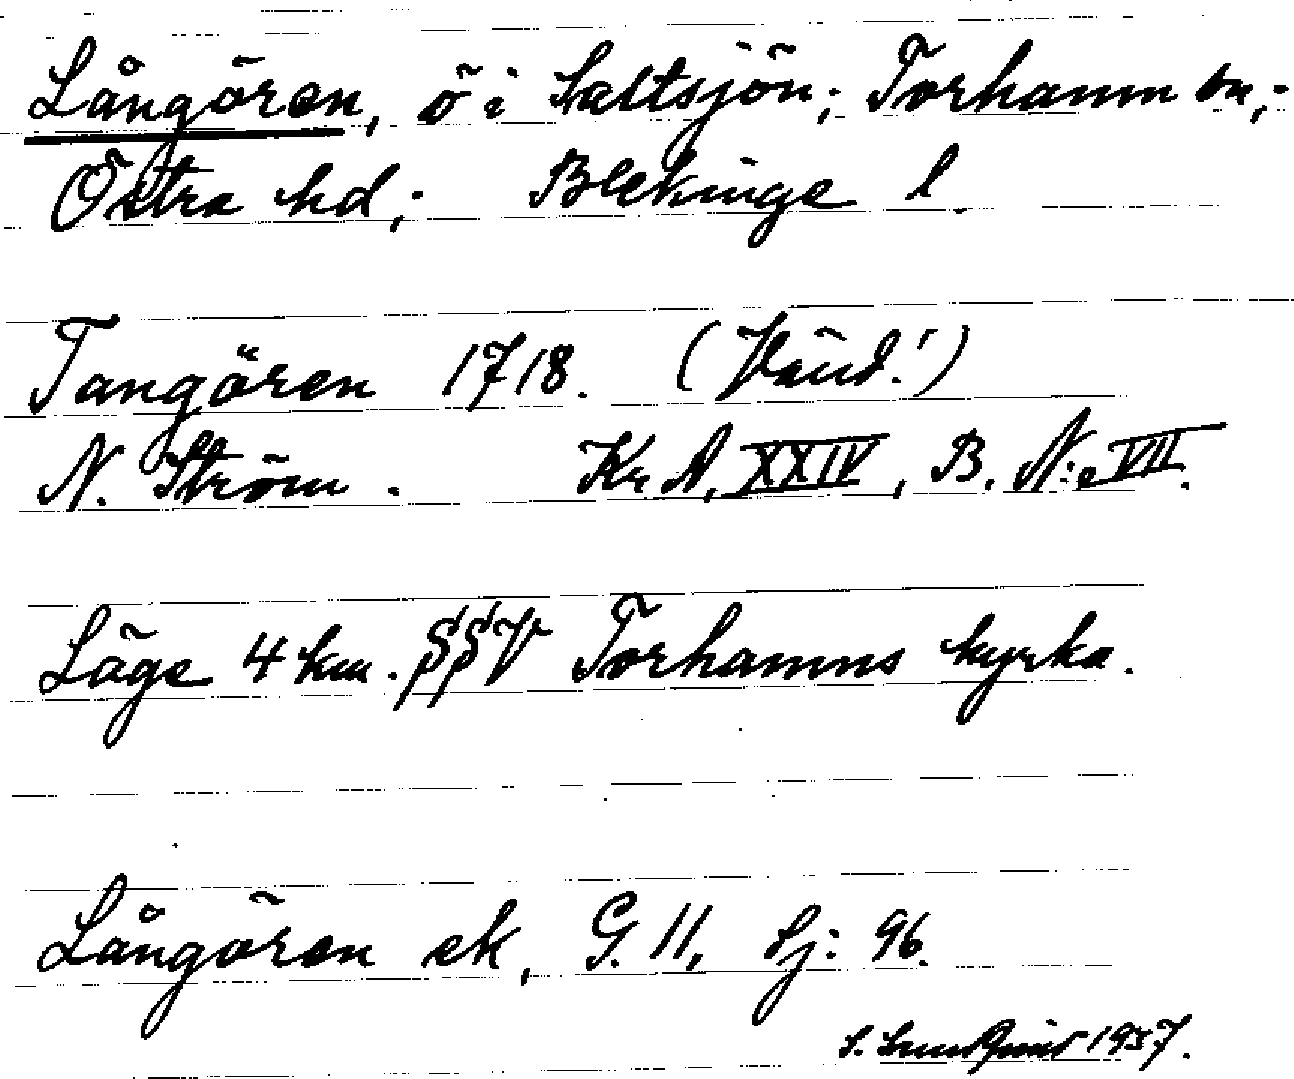 Långören, ö i Saltsjön; Torhamn sn,;
Östra hd,; Blekinge l.
Tangören 1718. (Vänd!)
N. Ström. Kr A, XXIV, B. N:o VII.
Läge 4 km. SSV Torhamns kyrka.
Långören ek, G. 11, Sj: 96.
S. Lundqvist 1937.